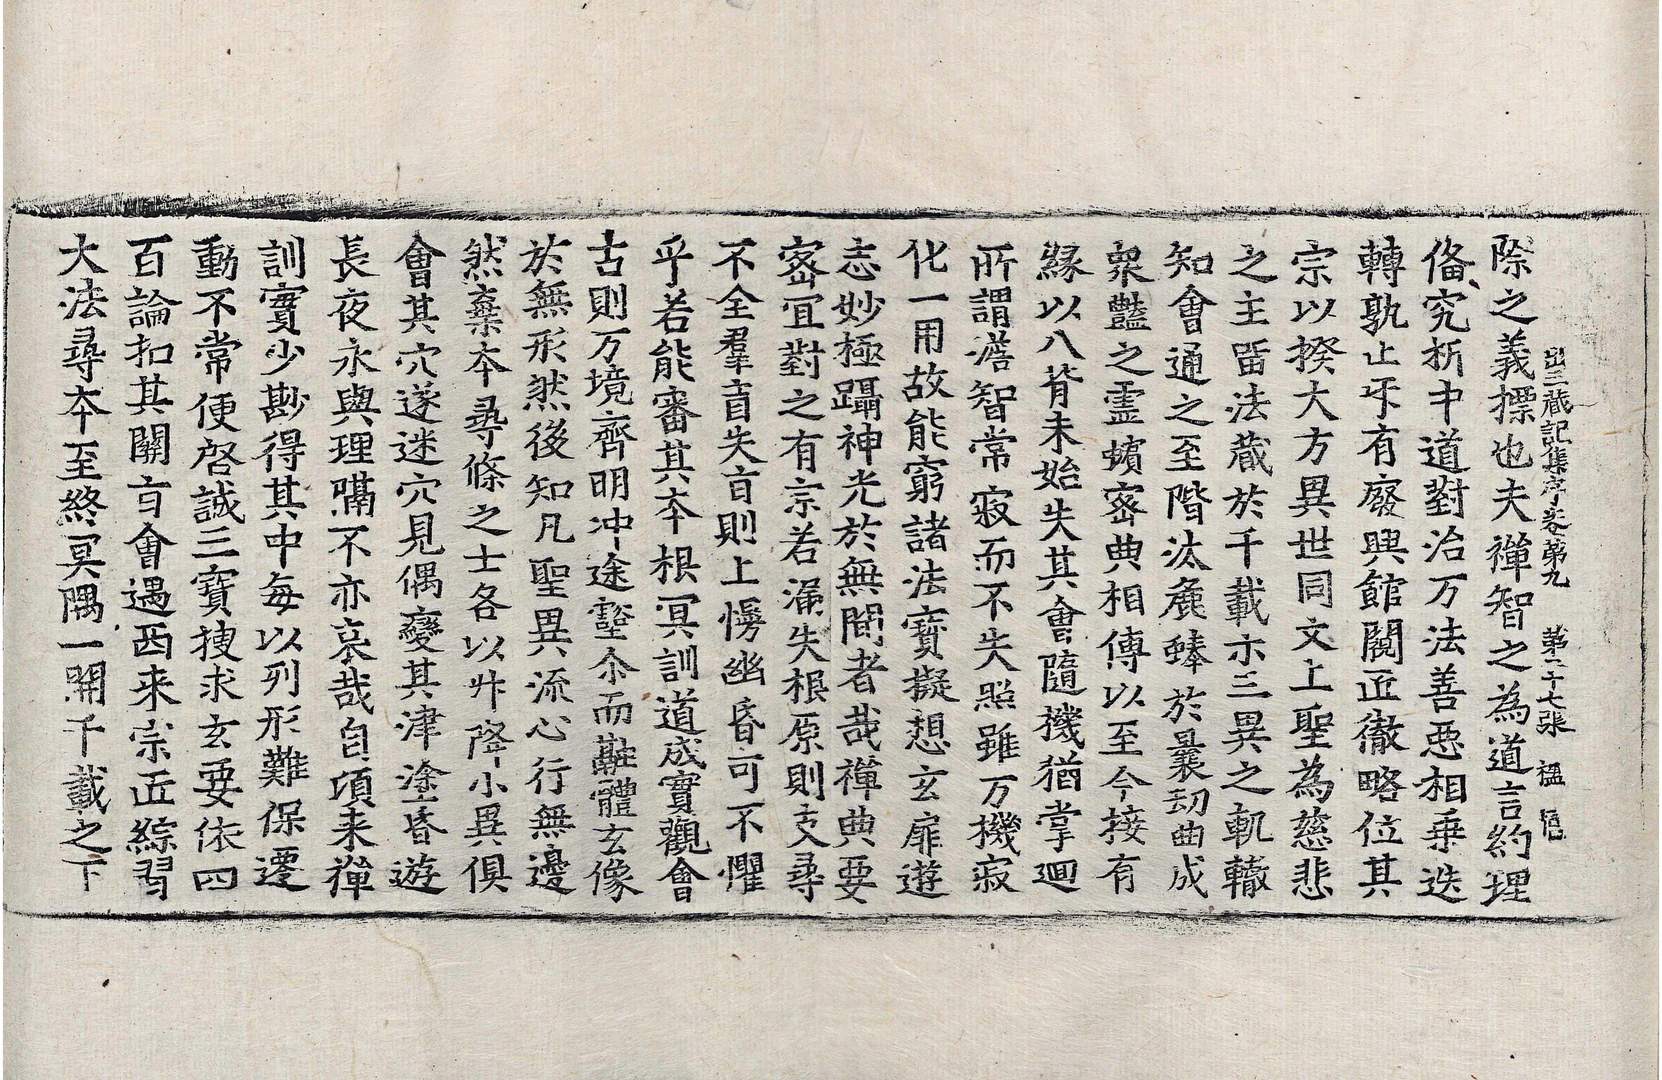 出三藏記集序卷第九　第二十七張　楹
除之義摽也夫禪智之為道言約理
俻究析中道對治万法善惡相乗迭
轉孰止乎有廢興館闕匠徹略位其
宗以揆大方異世同文上聖為慈悲
之主畱法藏於千載示三異之軌轍
知會通之至階汰麁蜯於曩刧曲成
衆豔之靈蠙宻典相傳以至今接有
縁以八背未始失其會隨機猶掌迴
所謂澹智常寂而不失照雖万機寂
化一用故能窮諸法寶擬想玄扉遊
志妙極躡神光於無閡者哉禪典要
宻冝對之有宗若漏失根原則支尋
不全群盲失㫖則上慢幽昏可不懼
乎若能審其夲根冥訓道成實觀會
古則万境齊明冲途豁尒而融體玄像
於無形然後知凡聖異流心行無邊
然棄夲尋條之士各以升降小異俱
會其穴遂迷穴見偶變其津塗昏遊
長夜永與理隔不亦哀哉自頃来禪
訓實少尠得其中每以列形難保遷
動不常便啓誠三寶搜求玄要依四
百論扣其關㫖會遇西来宗匠綜習
大法尋夲至終冥隅一開千載之下